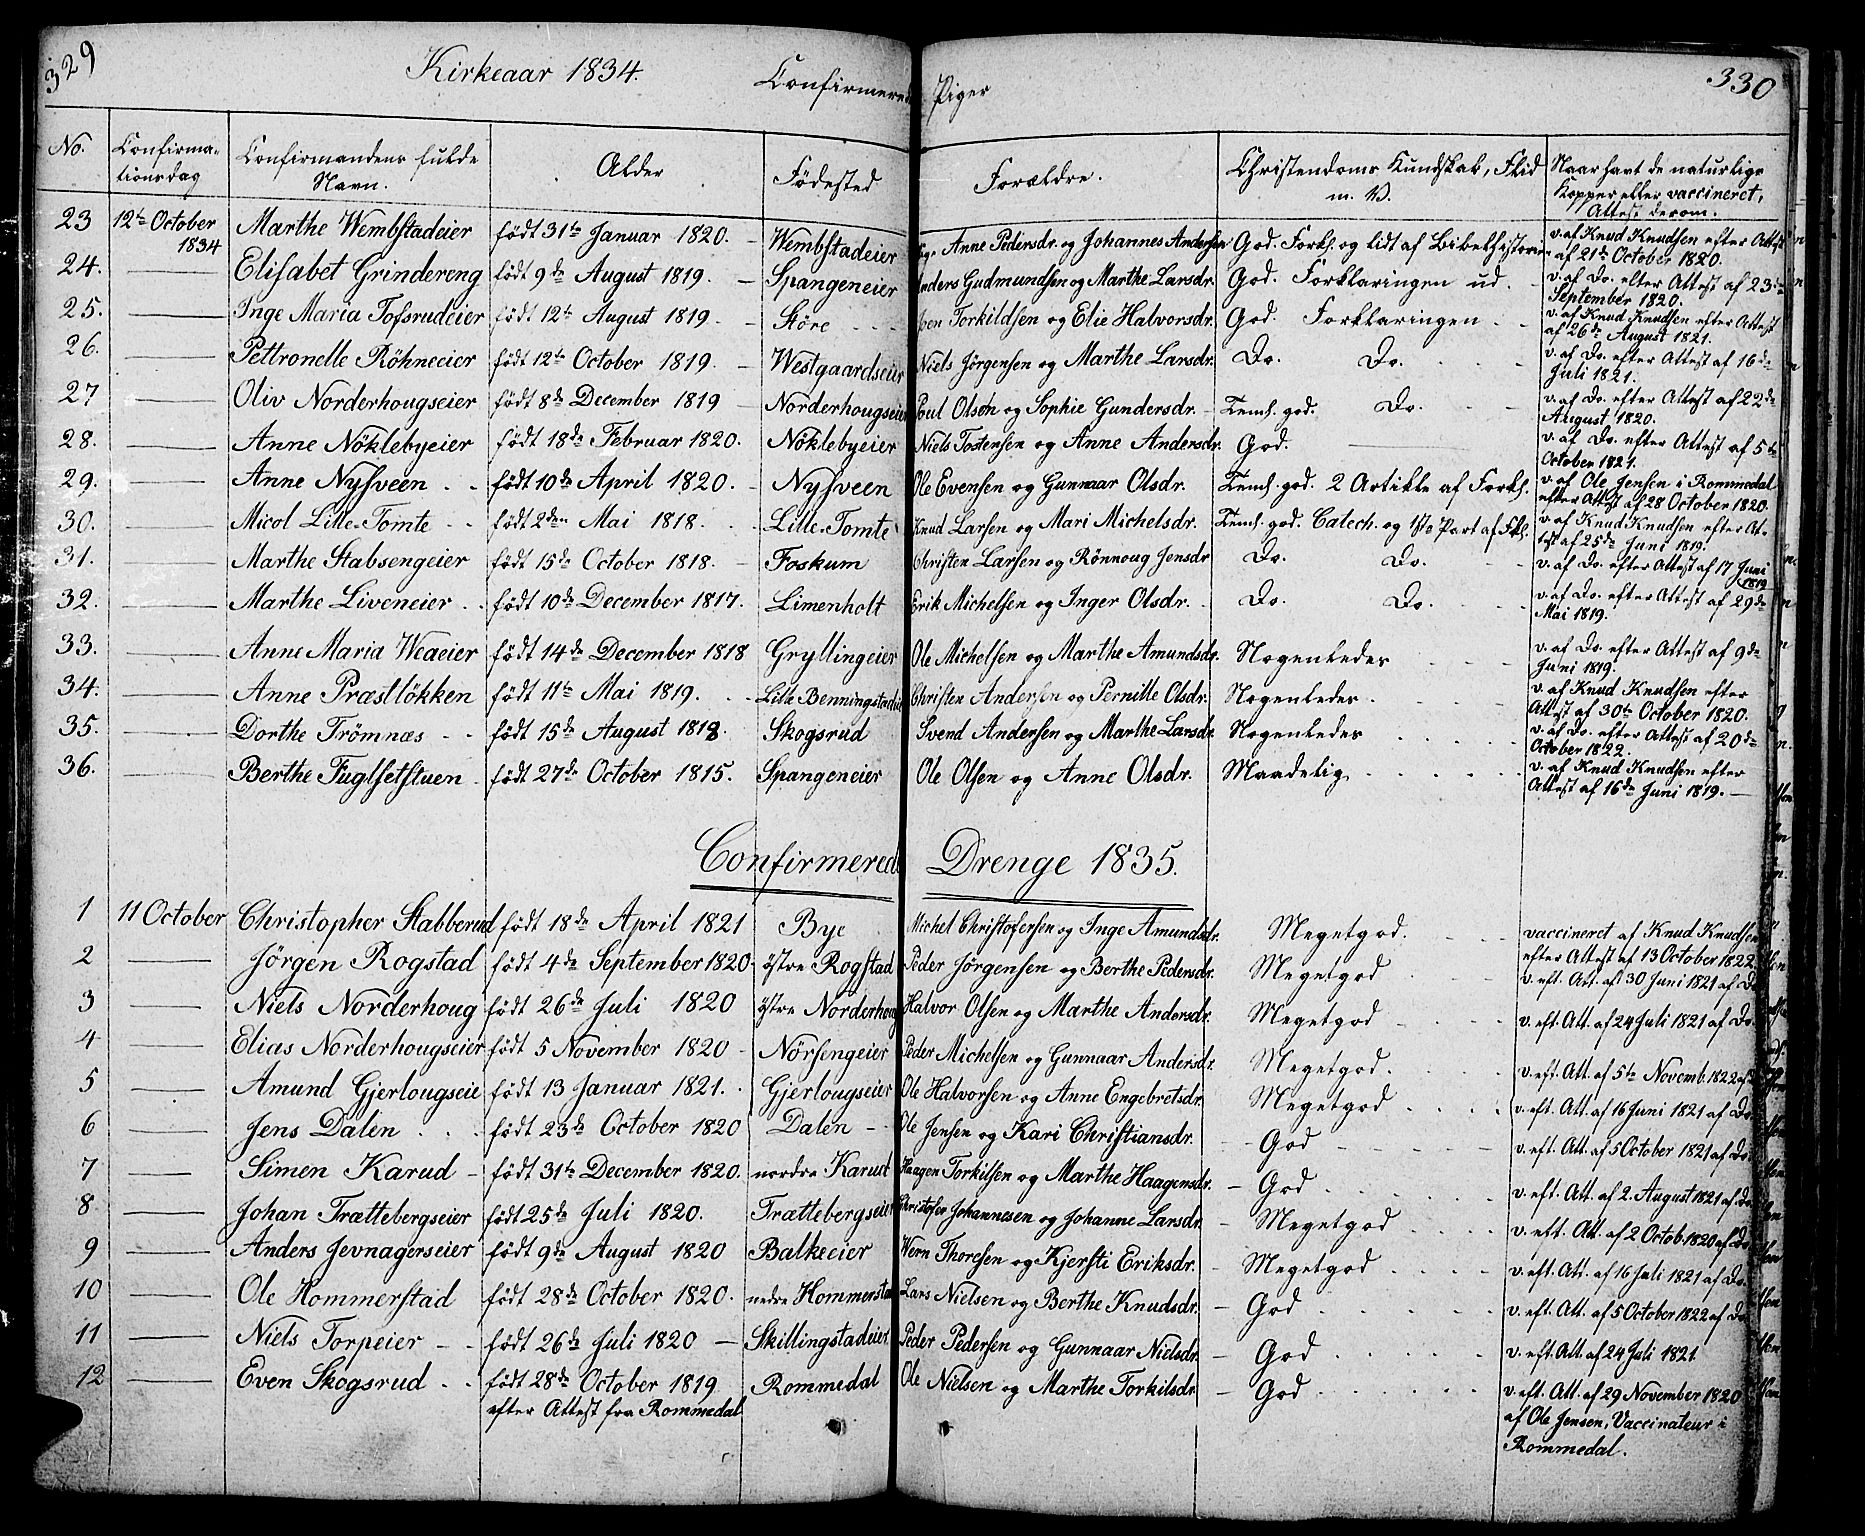 329 Kirkeaar 1834. Confirmerede Piger 330
No. Confirmationsdag Confirmandens fulde Navn. Alder Födested Forældre. Christendoms Kundskab, Flid m. V. Naar havt de naturlige Kopper eller vaccineret, Attest derom.
23 12te October 1834 Marthe Wembstadeier födt 31te Januar 1820. Wembstadeier Anne Pedersdr. og Johannes Andersen God. Forkl. og lidt af Bibelhistorien v. af Knud Knudsen efter Attest af 21de October 1820.
24. Elisabet Grindereng födt 9de August 1819. Spangeneier Anders Gudmundsen og Marthe Larsdr. God. Forklaringen ud. v. af Do. efter Attest af 23de September 1820.
25. Inge Maria Tofsrudeier födt 12te August 1819 Störe Torkildsen og Elie Halvorsdr. God. Forklaringen v. af Knud Knudsen efter Attest af 26de August 1821.
26. Pettronelle Röhneeier födt 12te October 1819. Westgaardseier Niels Jörgensen og Marthe Larsdr. Do. Do. v. af Do. efter Attest af 16de Juli 1821.
27 Oliv Norderhougseier födt 8de December 1819 Norderhougseier Poul Olsön og Sophie Gundersdr. Teml. god. Do. v. af Do. efter Attest af 22de August 1820.
28. Anne Nöklebyeier födt 18de Februar 1820. Nöklebyeier Niels Tostensen og Anne Andersdr. God. v. af Do. efter Attest af 5te October 1821.
29. Anne Nysveen födt 10de April 1820. Nysveen Ole Evensen og Gunnaar Olsdr. Teml. god. 2 Artikle af Forkl. v. af Ole Jensen i Rommedal efter Attest af 28 October 1820.
30. Micol Lille-Tomte födt 2den Mai 1818. Lille-Tomte Knud Larsen og Mari Michelsdr. Teml. god. Catech. og 1ste Part af Fkl. v. af Knud Knudsen efter Attest af 25de Juni 1819.
31. Marthe Stabsengeier födt 15de October 1818. Foskum Christen Larsen og Rönnoug Jensdr Do. Do. v. af Do. efter Attest af 17 Juni 1819
32. Marthe Liveneier födt 10de December 1817. Limenholt Erik Michelsen og Inger Olsdr. Do. Do. v. af Do. efter Attest af 29de Mai 1819.
33. Anne Maria Weaeier födt 14de December 1818 Gryllingeier Ole Michelsen og Marthe Amundsdr. Nogenledes v. af Do efter Attest af 9de Juni 1819.
34. Anne Præstlökken födt 11te Mai 1819. Lille Benningstadeier Christen Andersen og Pernille Olsdr. Nogenledes v. af Knud Knudsen efter Attest af 30te October 1820.
35. Dorthe Trömnæs födt 15de August 1818. Skogsrud Svend Andersen og Marthe Larsdr. Nogenledes v. af Do. efter Attest af 20de October 1822.
36. Berthe Fuglsetstuen födt 27de October 1815. Spangeneier Ole Olsen og Anne Olsdr. Maadelig v. af Knud Knudsen efter Attest af 16de Juni 1819.
Confirmerede Drenge 1835.
1 11 October Christopher Stabberud födt 18de April 1821 Bye Michel Christofersen og Inge Amundsdr. Megetgod. vaccineret af Knud Knudsen efter Attest af 13 October 1822
2 Jörgen Rogstad födt 4de September 1820 östre Rogstad Peder Jörgensen og Berthe Pedersdr. Megetgod v. eft. Att. aft 30 Juni 1821 af Do
3 Niels Norderhoug födt 26de Juli 1820 östre Norderhoug Halvor Olsen og Marthe Andersdr. Megetgod v. eft. Att. af 24 Juli 1821 af Do.
4 Elias Norderhougseier födt 5 November 1820 Nörsengeier Peder Michelsen og Gunnaar Andersdr. Megetgod. v. eft. Att. af 5te Novemb. 1822 af
5 Amund Gjerlougseie födt 13 Januar 1821. Gjerlougseier Ole Halvorsen og Anne Engebretsdr. Megetgod v. eft. Att. af 16 Juni 1821 af Do
6 Jens Dalen födt 23de October 1820 Dalen Ole Jensen og Kari Christiansdr. God v. eft. Att. af 5 October 1821 af Do.
7 Simen Karud födt 31te December 1820. nordre Karud Haagen Torkilsen og Marthe Haagensdr. God v. eft. Att. af 2. August 1821 af Do
8. Johan Trættebergseier födt 25de Juli 1820. Trættebergseier Christofer Johannesen og Johanne Larsdr. Megetgod v. eft. Att. af 2 Octob. 1820 af Do
9 Anders Jevnagerseier födt 9de August 1820 Balkeeier Wern Thoresen og Kjersti Eriksdr. Megetgod v. eft. Att. af 16 Juli 1821 af Do.
10 Ole Hommerstad födt 28de October 1820. nedre Hommerstad Lars Nielsen og Berthe Knudsdr. God v. eft. Att. af 5 October 1822 af Do
11 Niels Torpeier födt 26de Juli 1820 Skillingstadeier Peder Pedersen og Gunnaar Nielsdr. God v. eft. Att. af 24 Juli 1821.
12 Even Skogsrud födt 28de October 1819 efter Attest fra Rommedal Rommedal Ole Nielsen og Marthe Torkilsdr God v. eft. Att. af 29 November 1820 af Ole Jensen, Vaccinateur i Rommedal.